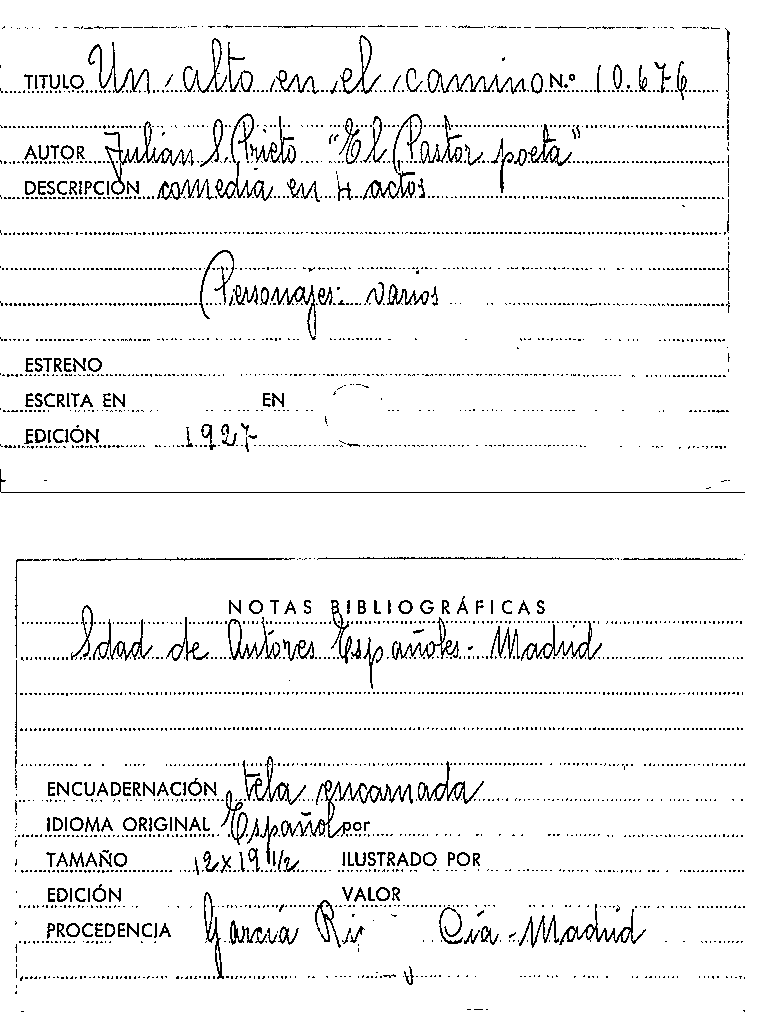 TITULO Un alto en el camino N.º 10.676
AUTOR Julián S. Prieto "El Pastor poeta"
DESCRIPCIÓN comedia en 4 actos
Personajes: varios
ESTRENO
ESCRITA EN EN
EDICIÓN 1927
NOTAS BIBLIOGRÁFICAS
Sdad de Autores Españoles - Madrid
ENCUADERNACIÓN tela encarnada
IDIOMA ORIGINAL Español por
TAMAÑO 12 x 19 1/2 ILUSTRADO POR
EDICIÓN VALOR
PROCEDENCIA García Cía - Madrid